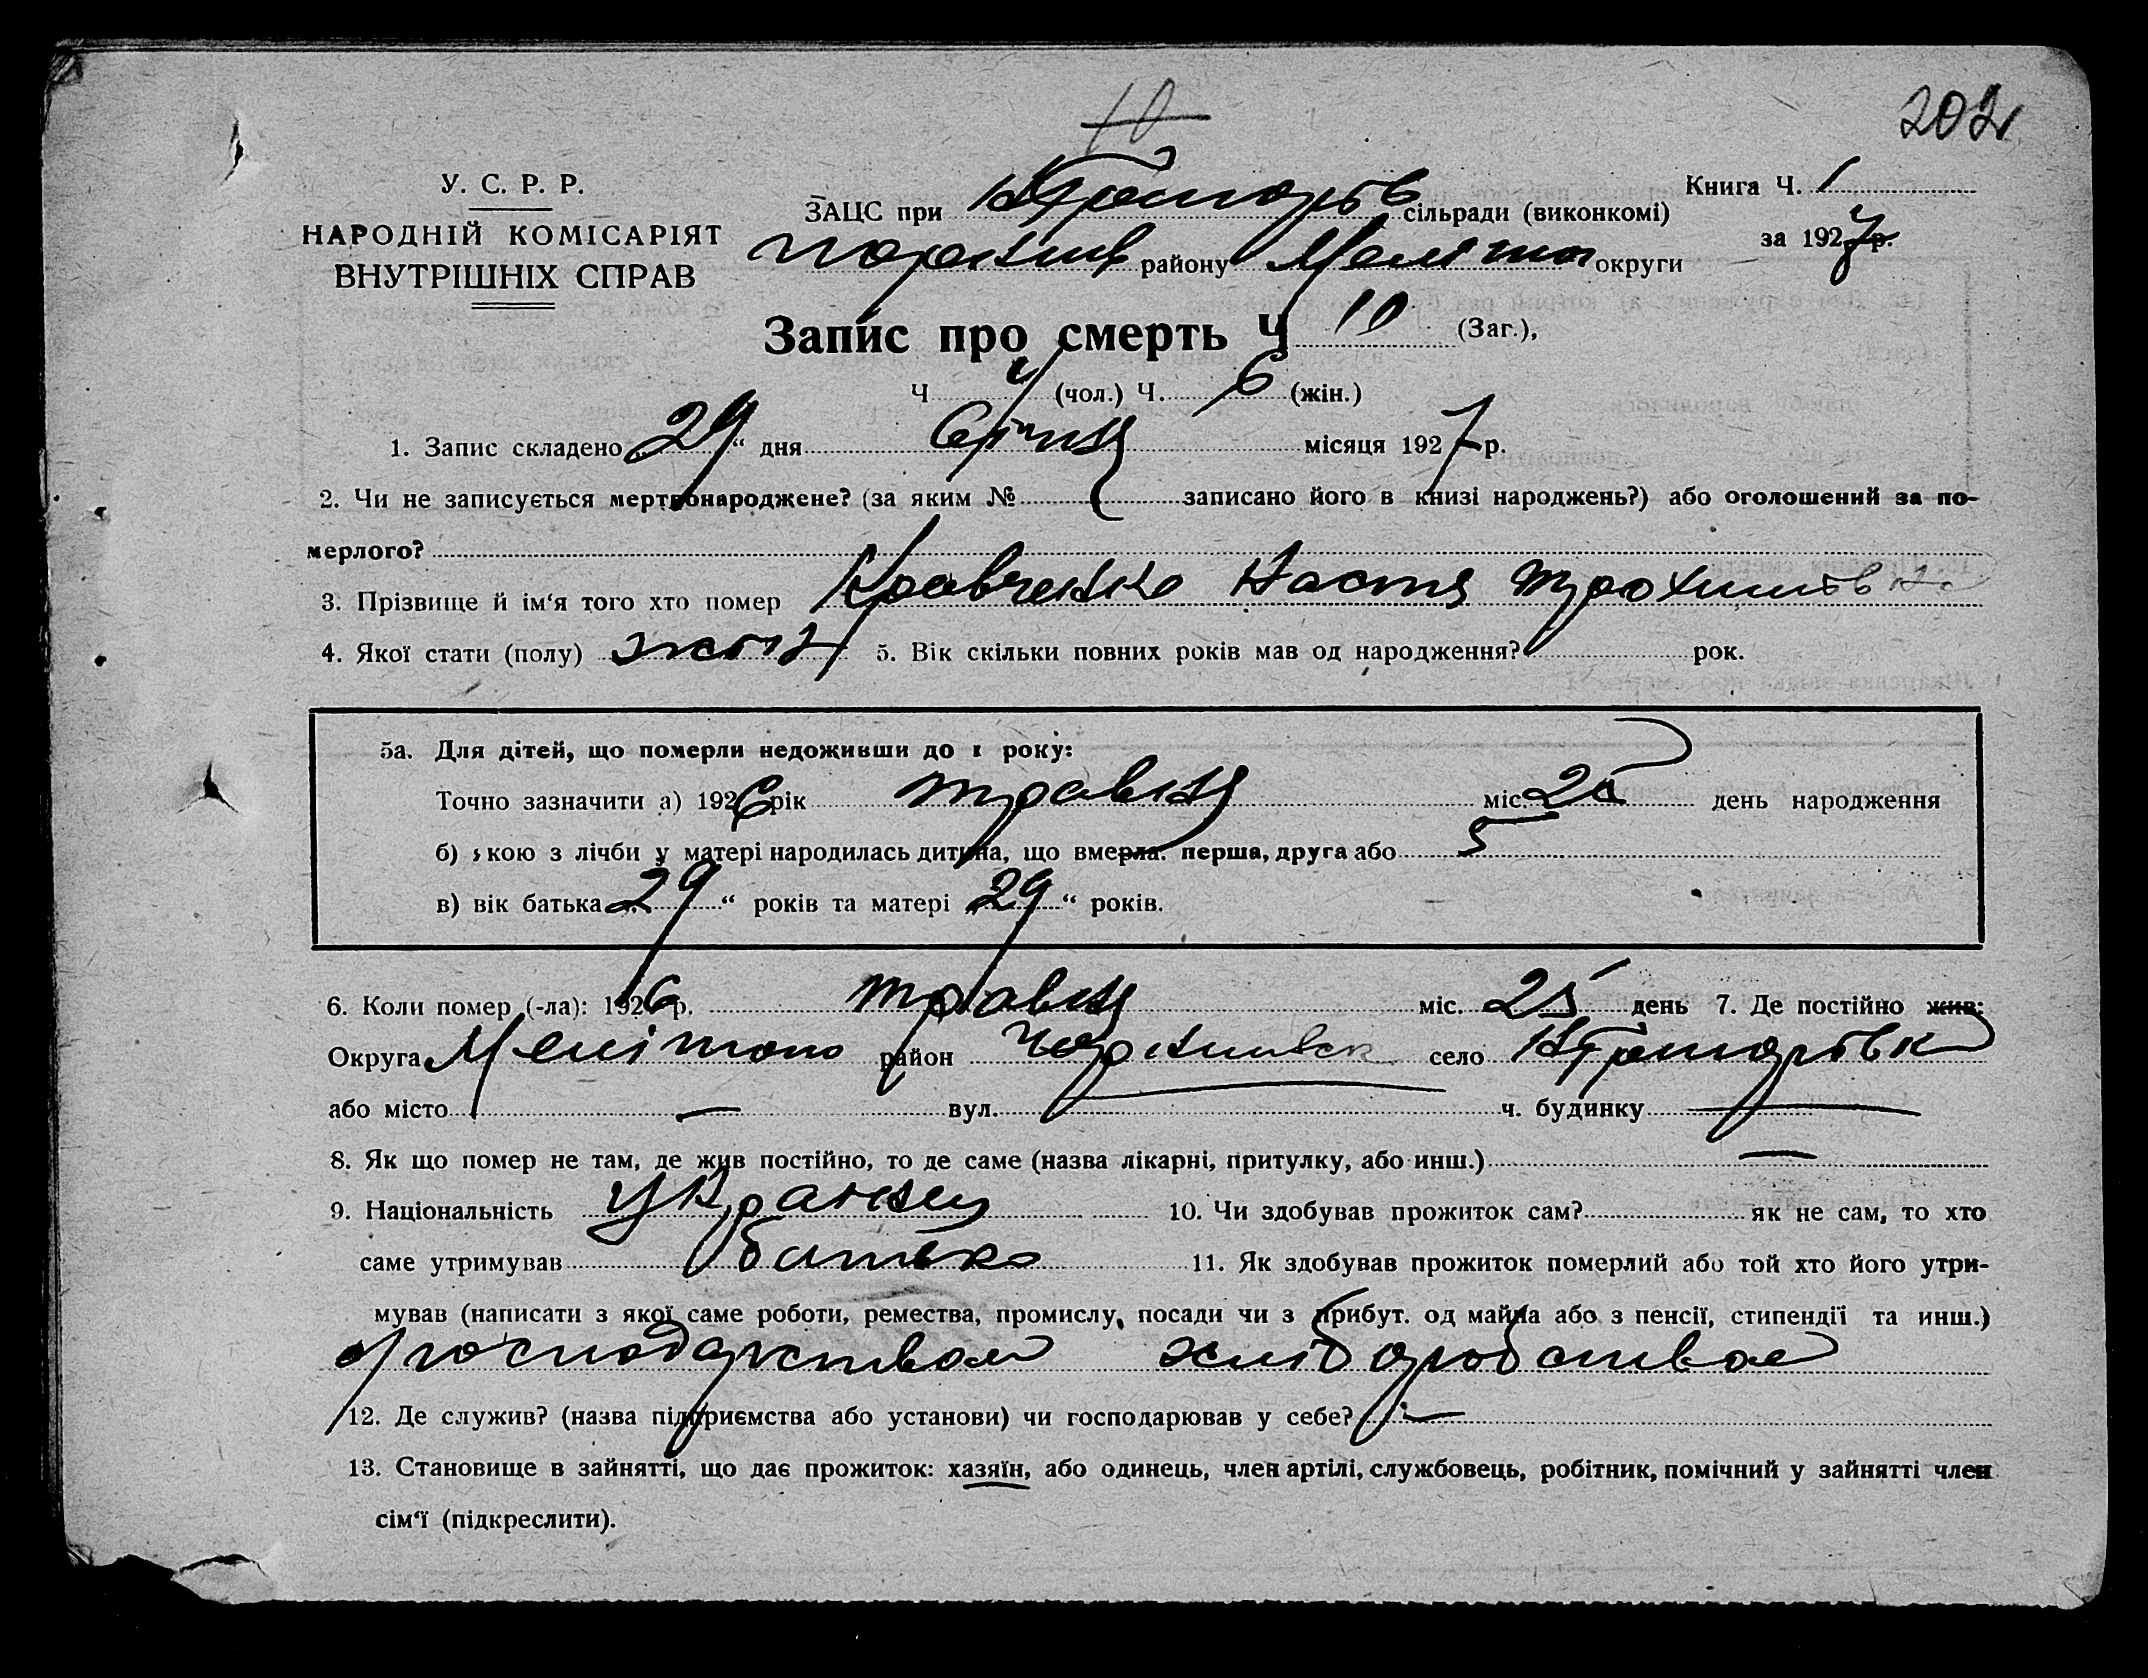 10
202
У. С. Р. Р.
НАРОДНІЙ КОМІСАРІЯТ
ВНУТРІШНІХ СПРАВ
ЗАЦС при сільради (виконкомі)
району Меліто округи
Книга Ч. 1
за 1927 р.
Запис про смерть Ч 10 (Заг.),
Ч 4 (чол.) Ч. 6 (жін.)
1. Запис складено „29“ дня Січня місяця 1927 р.
2. Чи не записується мертвонароджене? (за яким № записано його в книзі народжень?) або оголошений за по-
мерлого?
3. Прізвище й ім‘я того хто помер Кравченко Настя Трохимівна
4. Якої стати (полу) жіноч 5. Вік скільки повних років мав од народження? рок.
5а. Для дітей, що померли недоживши до 1 року:
Точно зазначити а) 1926 рік травня міс. день народження
б) якою з лічби у матері народилась дитина, що вмерла: перша, друга або 5
в) вік батька „29“ років та матері „29“ років.
6. Коли помер (-ла): 1926 р. травня міс. 25 день 7. Де постійно жив:
Округа Мелітопо район село
або місто — вул. ч. будинку —
8. Як що помер не там, де жив постійно, то де саме (назва лікарні, притулку, або инш.) —
9. Національність 10. Чи здобував прожиток сам? як не сам, то хто
саме утримував батько 11. Як здобував прожиток померлий або той хто його утри-
мував (написати з якої саме роботи, ремества, промислу, посади чи з прибут. од майна або з пенсії, стипендії та инш.)
господарством хліборобством
12. Де служив? (назва підприємства або установи) чи господарював у себе? —
13. Становище в зайнятті, що дає прожиток: хазяїн, або одинець, член артілі, службовець, робітник, помічний у зайнятті член
сім‘ї (підкреслити).